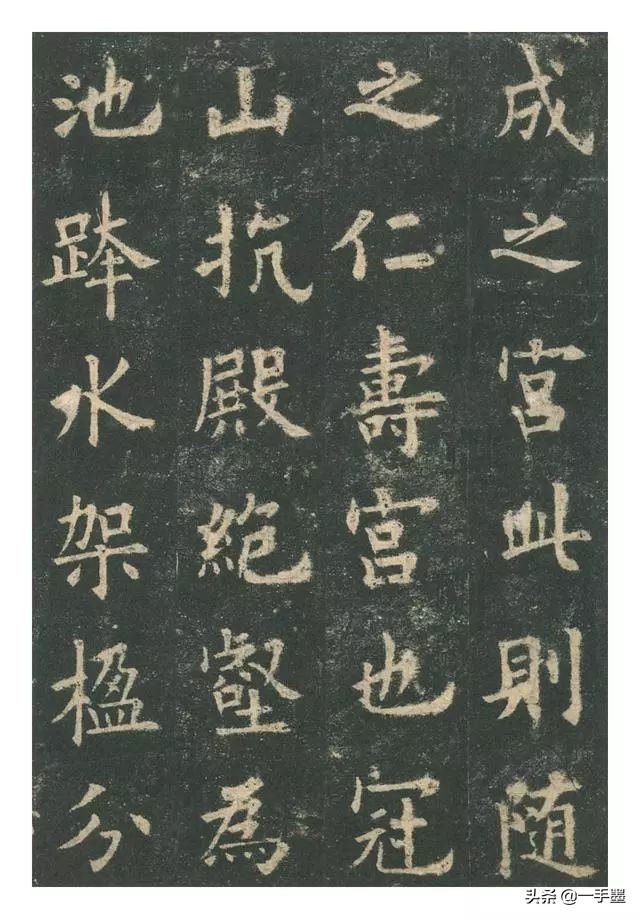 成之宮此則随
之仁壽宮也冠
山抗殿絶壑為
池跨水架楹分
头条 @一手墨